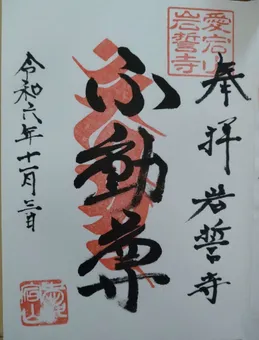 奉拝 岩誓寺
愛宕山
岩誓寺
不動尊
令和六年十一月三日